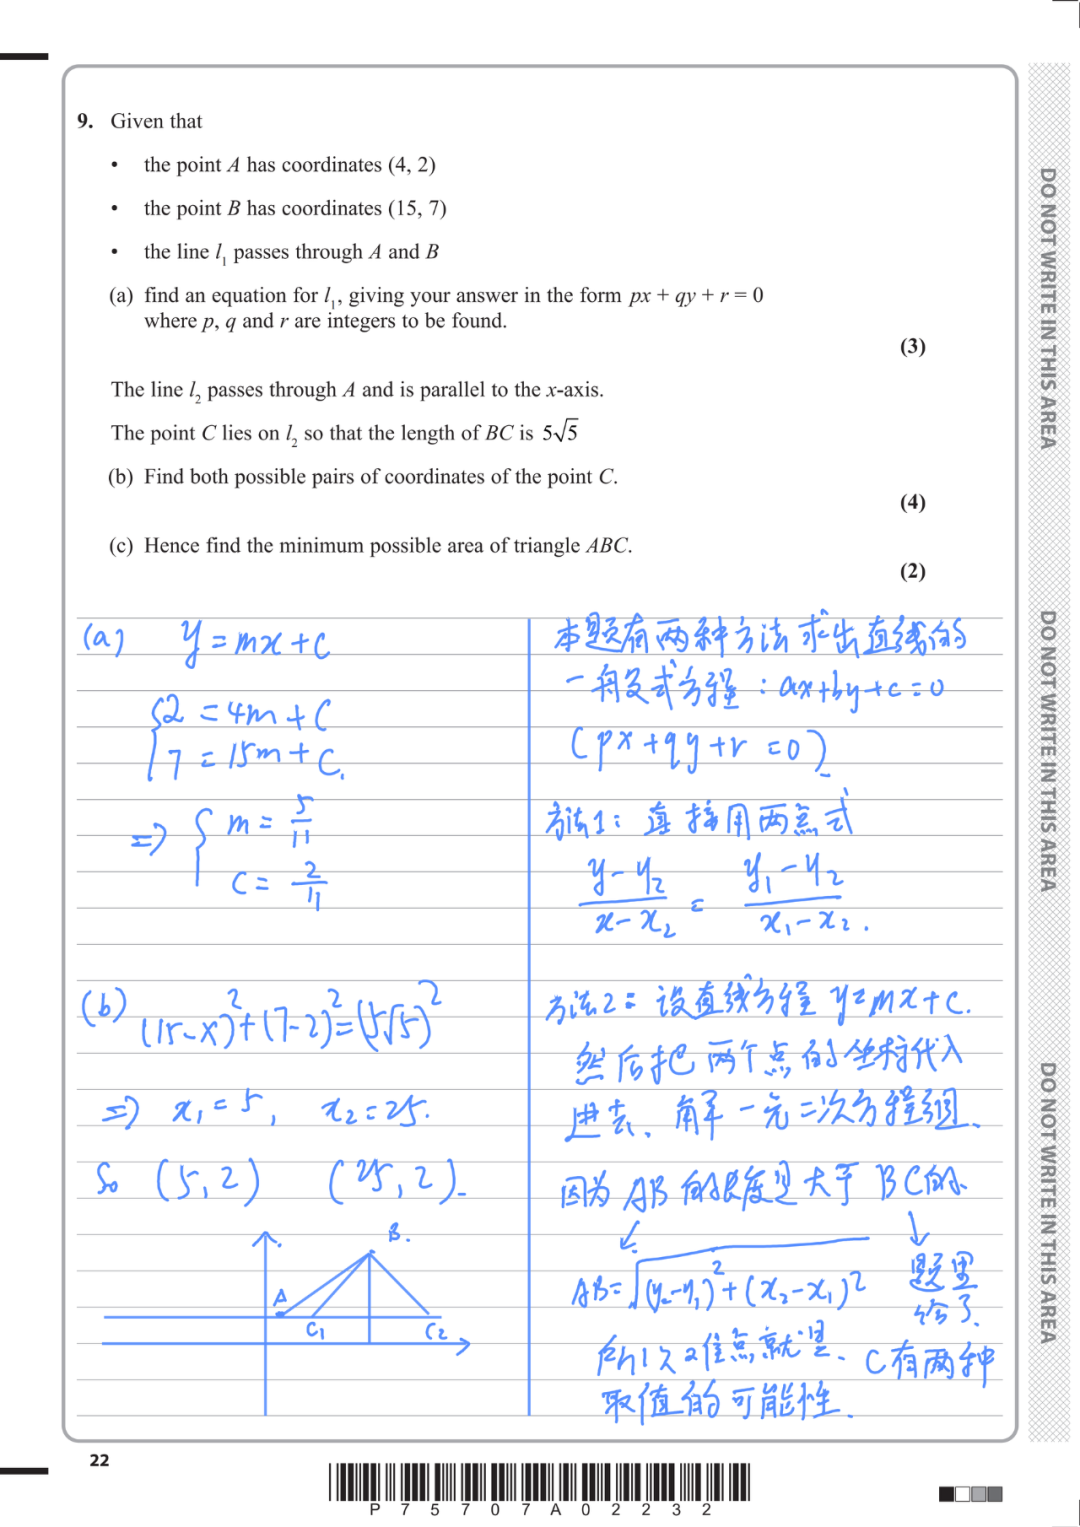 9. Given that
• the point A has coordinates (4, 2)
• the point B has coordinates (15, 7)
• the line l₁ passes through A and B
(a) find an equation for l₁, giving your answer in the form px + qy + r = 0
where p, q and r are integers to be found.
(3)
The line l₂ passes through A and is parallel to the x-axis.
The point C lies on l₂ so that the length of BC is 5√5
(b) Find both possible pairs of coordinates of the point C.
(4)
(c) Hence find the minimum possible area of triangle ABC.
(2)
(a) y = mx + C
{2 = 4m + C
7 = 15m + C.
⇒ { m = 5/11
C = 2/11
(b) (15-x)²+(7-2)²=(5√5)²
⇒ x₁ = 5, x₂ = 25.
So (5,2) (25,2).
B.
A
C₁ C₂
本题有两种方法求出直线的
一般式方程：ax+by+c=0
(px+qy+r=0).
方法1：直接用两点式
y-y₂/x-x₂ = y₁-y₂/x₁-x₂.
方法2：设直线方程 y=mx+c.
然后把两个点的坐标代入
进去、解一元二次方程组、
因为AB的长度是大于BC的.
AB=√(y₂-y₁)²+(x₂-x₁)²
题里
给了.
所以难点就是、C有两种
取值的可能性.
22
P75707A02232
DO NOT WRITE IN THIS AREA
DO NOT WRITE IN THIS AREA
DO NOT WRITE IN THIS AREA